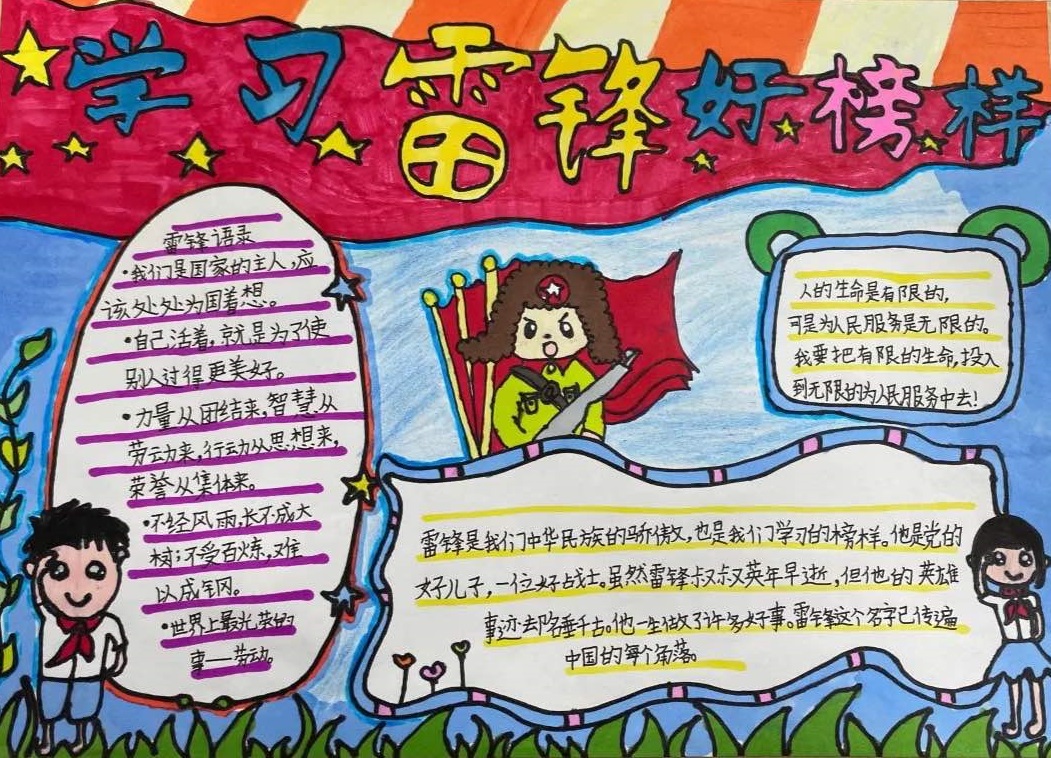 学习雷锋好榜样
雷锋语录
·我们是国家的主人,应
该处处为国着想。
·自己活着,就是为了使
别人过得更美好。
·力量从团结来,智慧从
劳动来,行动从思想来,
荣誉从集体来。
·不经风雨,长不成大
树;不受百炼,难
以成钢。
·世界上最光荣的
事——劳动。
人的生命是有限的,
可是为人民服务是无限的。
我要把有限的生命,投入
到无限的为人民服务中去!
雷锋是我们中华民族的骄傲,也是我们学习的榜样。他是党的
好儿子,一位好战士。虽然雷锋叔叔英年早逝,但他的英雄
事迹去陷垂千古。他一生做了许多好事。雷锋这个名字已传遍
中国的每个角落。